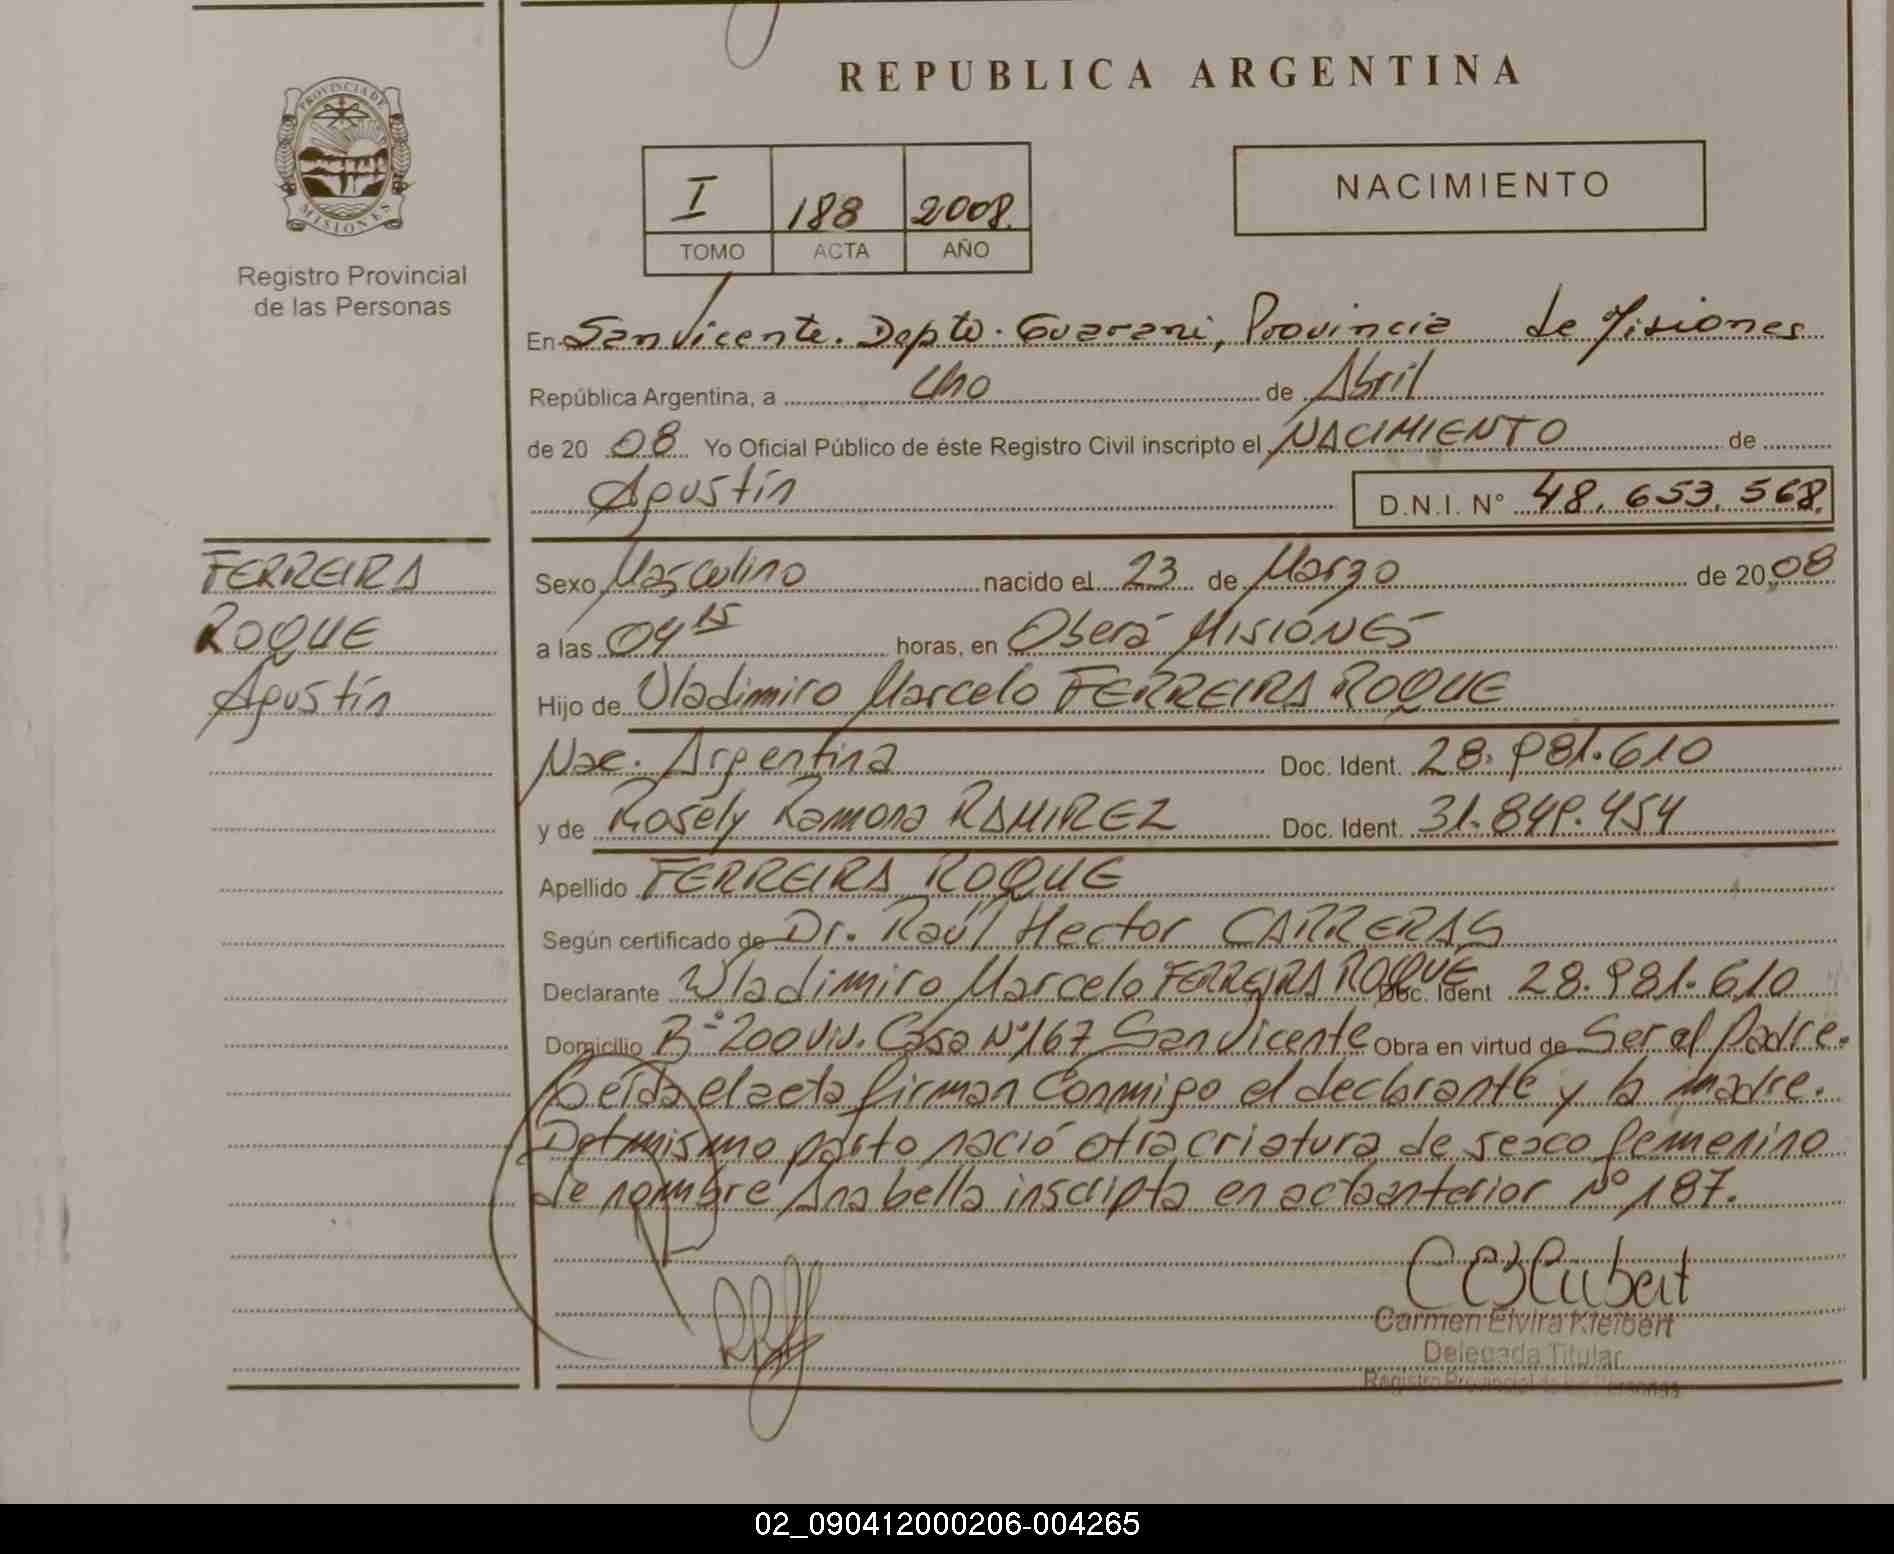 REPUBLICA ARGENTINA
PROVINCIA DE
MISIONES
Registro Provincial
de las Personas
I 188 2008.
TOMO ACTA AÑO
NACIMIENTO
En San Vicente. Depto. Guarani, Provincia de Misiones
República Argentina, a Uno de Abril
de 20 08 Yo Oficial Público de éste Registro Civil inscripto el NACIMIENTO de
Agustín D.N.I. N° 48.653.568.
FERREIRA
ROQUE
Agustín
Sexo Masculino nacido el 23 de Marzo de 20 08
a las 04 15 horas, en Oberá MISIONES
Hijo de Wladimiro Marcelo FERREIRA ROQUE
Nac. Argentina Doc. Ident. 28.981.610
y de Rosely Ramona RAMIREZ Doc. Ident. 31.849.454
Apellido FERREIRA ROQUE
Según certificado de Dr. Raúl Hector CARRERAS
Declarante Wladimiro Marcelo FERREIRA ROQUE Doc. Ident 28.981.610
Domicilio B° 200 Viv. Casa N°167 San Vicente Obra en virtud de Ser el Padre.
Leída el acta firman conmigo el declarante y la madre.
Del mismo parto nació otra criatura de sexo femenino
de nombre Anabella inscripta en acta anterior N° 187.
Carmen Elvira Kleibert
Delegada Titular
Registro Provincial de las Personas
02_090412000206-004265